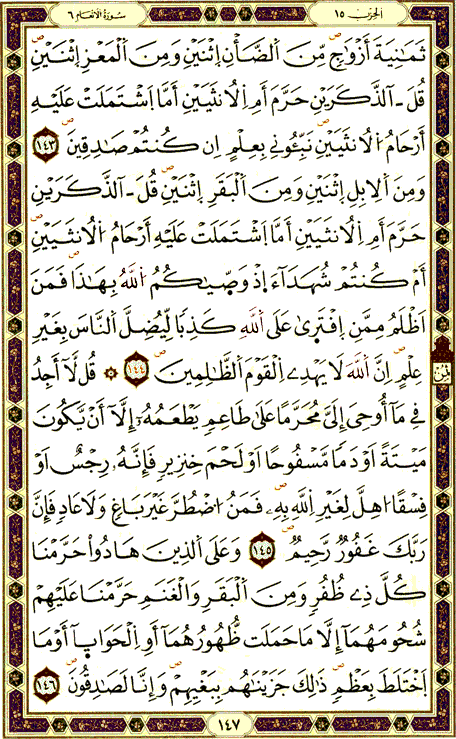 سورة الأنعام ٦
الحزب ١٥
ص
ثَمَٰنِيَةَ أَزْوَٰجٖ مِّنَ اَ۬لضَّأْنِ اِ۪ثْنَيْنِ وَمِنَ اَ۬لْمَعْزِ اِ۪ثْنَيْنِ
قُلَ ـ آلذَّكَرَيْنِ حَرَّمَ أَمِ اِ۬لُانثَيَيْنِ أَمَّا اَ۪شْتَمَلَتْ عَلَيْهِ
أَرْحَامُ اُ۬لُانثَيَيْنِ نَبِّـُٔونِے بِعِلْمٍ اِن كُنتُمْ صَٰدِقِينَ ١٤٣
وَمِنَ اَ۬لِابِلِ اِ۪ثْنَيْنِ وَمِنَ اَ۬لْبَقَرِ اِ۪ثْنَيْنِ قُلَ ـ آلذَّكَرَيْنِ
حَرَّمَ أَمِ اِ۬لُانثَيَيْنِ أَمَّا اَ۪شْتَمَلَتْ عَلَيْهِ أَرْحَامُ اُ۬لُانثَيَيْنِ
أَمْ كُنتُمْ شُهَدَآءَ اِذْ وَصّ۪يٰكُمُ اُ۬للَّهُ بِهَٰذَا فَمَنَ
اَظْلَمُ مِمَّنِ اِ۪فْتَر۪يٰ عَلَى اَ۬للَّهِ كَذِباٗ لِّيُضِلَّ اَ۬لنَّاسَ بِغَيْرِ
عِلْمٍ اِنَّ اَ۬للَّهَ لَا يَهْدِے اِ۬لْقَوْمَ اَ۬لظَّٰلِمِينَ ١٤٤ ۞ قُل لَّآ أَجِدُ
فِے مَآ أُوحِيَ إِلَيَّ مُحَرَّماً عَلَىٰ طَاعِمٖ يَطْعَمُهُۥٓ إِلَّآ أَنْ يَّكُونَ
مَيْتَةً اَوْ دَماٗ مَّسْفُوحاً اَوْ لَحْمَ خِنزِيرٖ فَإِنَّهُۥ رِجْسٌ اَوْ
فِسْقاً ا۟هِلَّ لِغَيْرِ اِ۬للَّهِ بِهِۦ فَمَنُ اُ۟ضْطُرَّ غَيْرَ بَاغٖ وَلَا عَادٖ فَإِنَّ
رَبَّكَ غَفُورٞ رَّحِيمٞ ١٤٥ وَعَلَى اَ۬لذِينَ هَادُواْ حَرَّمْنَا
كُلَّ ذِے ظُفُرٖ وَمِنَ اَ۬لْبَقَرِ وَالْغَنَمِ حَرَّمْنَا عَلَيْهِمْ
شُحُومَهُمَآ إِلَّا مَا حَمَلَتْ ظُهُورُهُمَآ أَوِ اِ۬لْحَوَايَآ أَوْ مَا
اَ۪خْتَلَطَ بِعَظْمٖ ذَٰلِكَ جَزَيْنَٰهُم بِبَغْيِهِمْ وَإِنَّا لَصَٰدِقُونَ ١٤٦
١٤٧